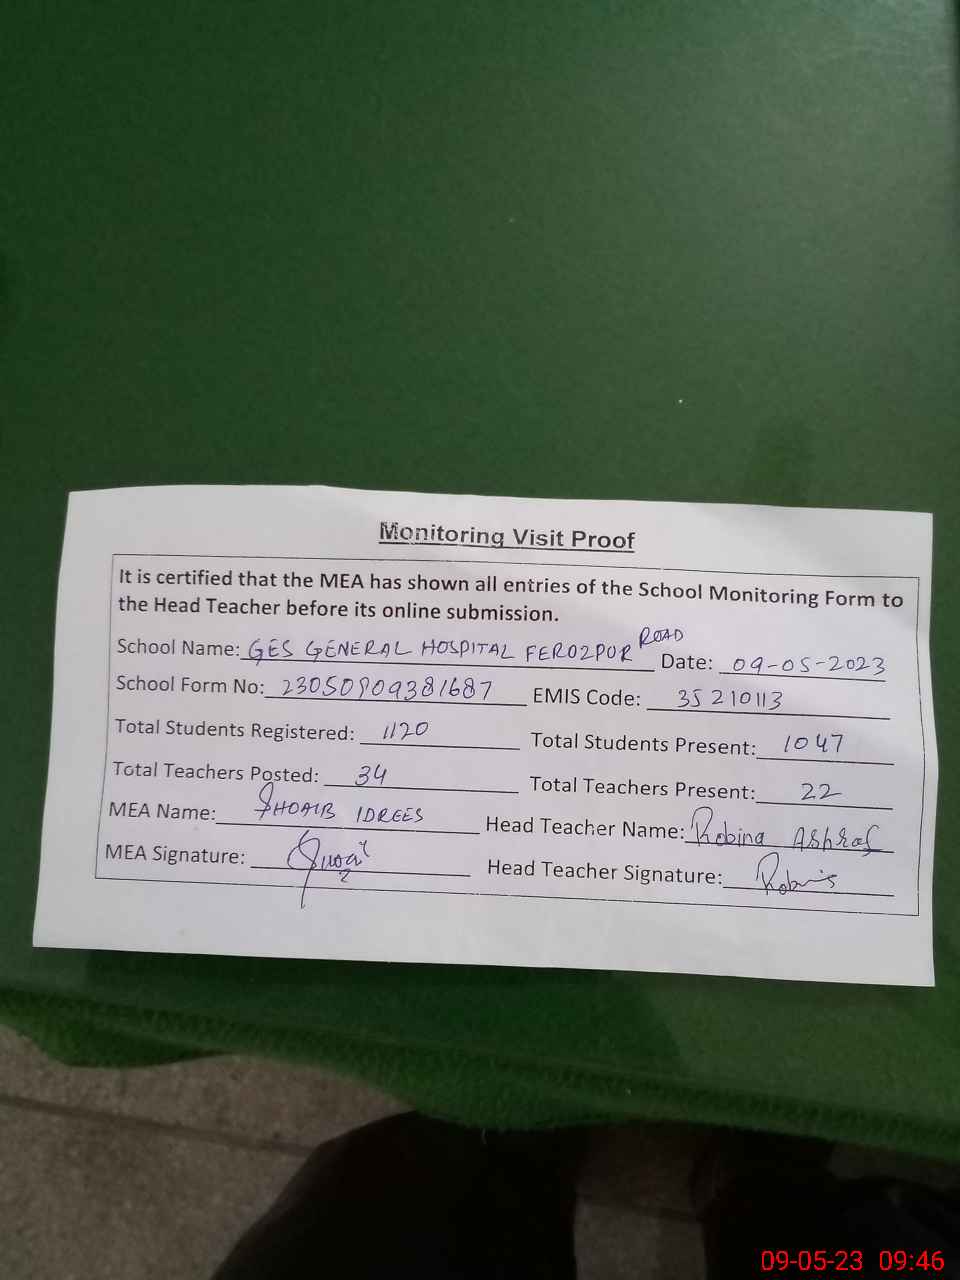 Monitoring Visit Proof
It is certified that the MEA has shown all entries of the School Monitoring Form to
the Head Teacher before its online submission.
School Name: GES GENERAL HOSPITAL FEROZPUR ROAD Date: 09-05-2023
School Form No: 23050909381687 EMIS Code: 35210113
Total Students Registered: 1120 Total Students Present: 1047
Total Teachers Posted: 34 Total Teachers Present: 22
MEA Name: SHOAIB IDREES Head Teacher Name: Robina Ashraf
MEA Signature: Head Teacher Signature:
09-05-23 09:46